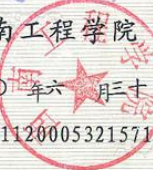 南工程学院
〇年六月三十
1120005321571